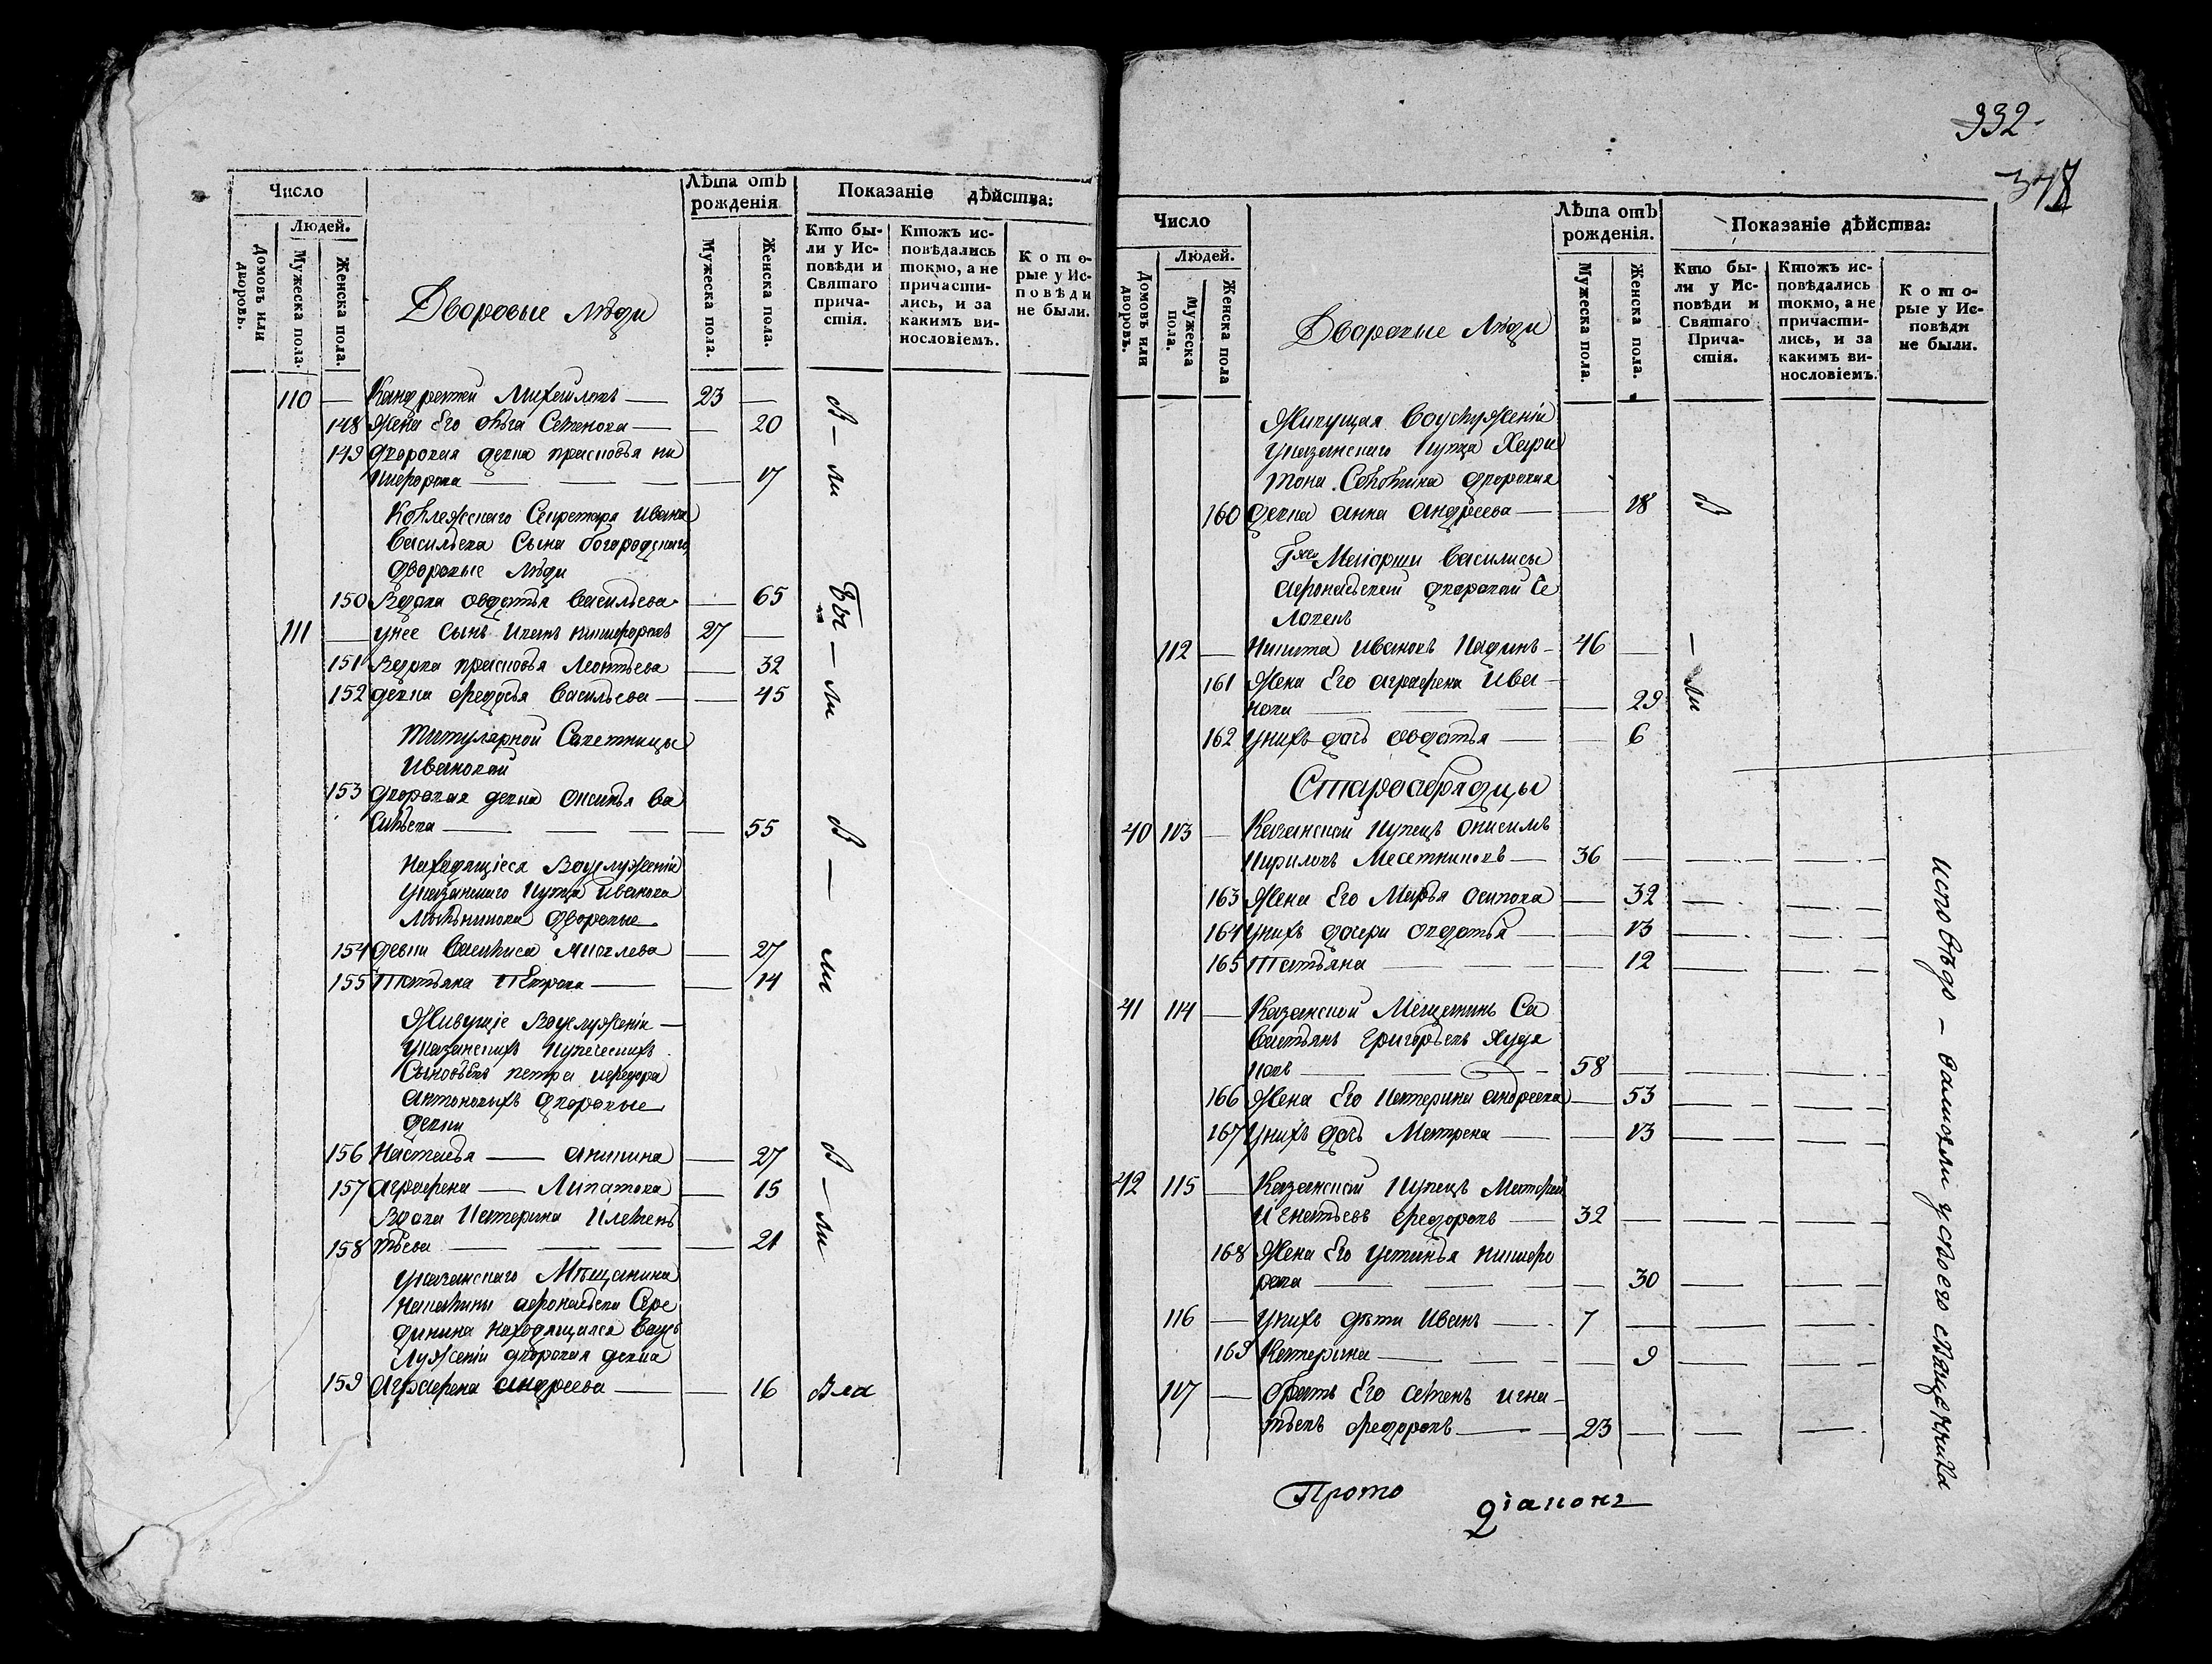 Число
Людей.
Домовъ или дворовъ.
Мужеска пола.
Женска пола.
Дворовые люди
Лѣта отъ рожденія
Мужеска пола.
Женска пола.
Показаніе дѣйства:
Кто были у Исповѣди и Святаго причастія.
Ктожъ исповѣдались токмо, а не причастились, и за какимъ винословіемъ.
Которые у Исповѣди не были.
110 — Кандратей Михайловъ — 23 —
148 Жена Его Ольга Семенова — — 20
149 дворовая девка прасковья ни
кифорова — — — — 17
Коллежскаго Секретаря Ивана
Васильева Сына богородскаго
дворовые люди
150 Вдова овдотья Васильева — 65
111 — унее Сынъ Иванъ никифоровъ 27 —
151 Вдова прасковья Леонтьева — 32
152 девка федосья Васильева — — 45
Титулярной Советницы
Ивановой
153 дворовая девка Аксинья Ва
сильева — — — — 55
Находящіеся Воуслуженіи
указанскаго купца Иванова
дворовые
154 девки Василиса Яковлева — 27
155 Татьяна Петрова — — 14
Живущіе Воуслуженіи —
указанскихъ купеческихъ
Сыновьевъ петра ифедора
Антоновыхъ дворовые
девки
156 Настасья — Аникина — 27
157 аграфена — Липатова — 15
Вдова Катерина Клемень
158 тьева — — — — 21
указанскаго Мѣщанина
афонасьева Сере
динина находящаяся Воус
луженіи дворовая девка
159 Аграфена андреева — — 16
В — ли
Бы — ли
В — ли
В — ли
Была
332
378
Число
Людей.
Домовъ или дворовъ.
Мужеска пола.
Женска пола
Дворовые Люди
Лѣта отъ рожденія.
Мужеска пола.
Женска пола.
Показаніе дѣйства:
Кто были у Исповѣди и Святаго Причастія.
Ктожъ исповѣдались токмо, а не причастились, и за какимъ винословіемъ.
Которые у Исповѣди не были.
Живущая Воуслуженіи
указанскаго купца Хари
тона дворовая
160 девка анна андреева — — 18
Гжи Маіорши Василисы
афонасьевой дворовой Че
ловекъ
112 — Никита Ивановъ — 46 —
161 Жена Его аграфена Ива —
нова — — — — 29
162 унихъ дочь овдотья — — 6
В — ли
Старообрядцы
40 113 — Казанской Купецъ Онисимъ
Кириловъ Месетниковъ — 36 — — —
163 Жена Его Марья осипова — 32 — —
164 унихъ дочери овдотья — — 13 — —
165 Татьяна — — — 12 — —
41 114 — Казанской Мещанинъ Са
вастьянъ Григорьевъ Худя
ковъ — — 58 — — —
166 Жена Его Катерина андреева — 53 — —
167 унихъ дочь Матрена — — 13 — —
42 115 — Казанской Купецъ Матфей
Игнатьевъ федоровъ — 32 — — —
168 Жена Его устинья никифо
рова — — — — 30 — —
116 — унихъ дети Иванъ — 7 — — —
169 Катерина — — — — 9 — —
117 — братъ Его семенъ игна —
тьевъ федоровъ — — 23 — — —
исповѣдо — вались усвоего священника
Прото діаконъ